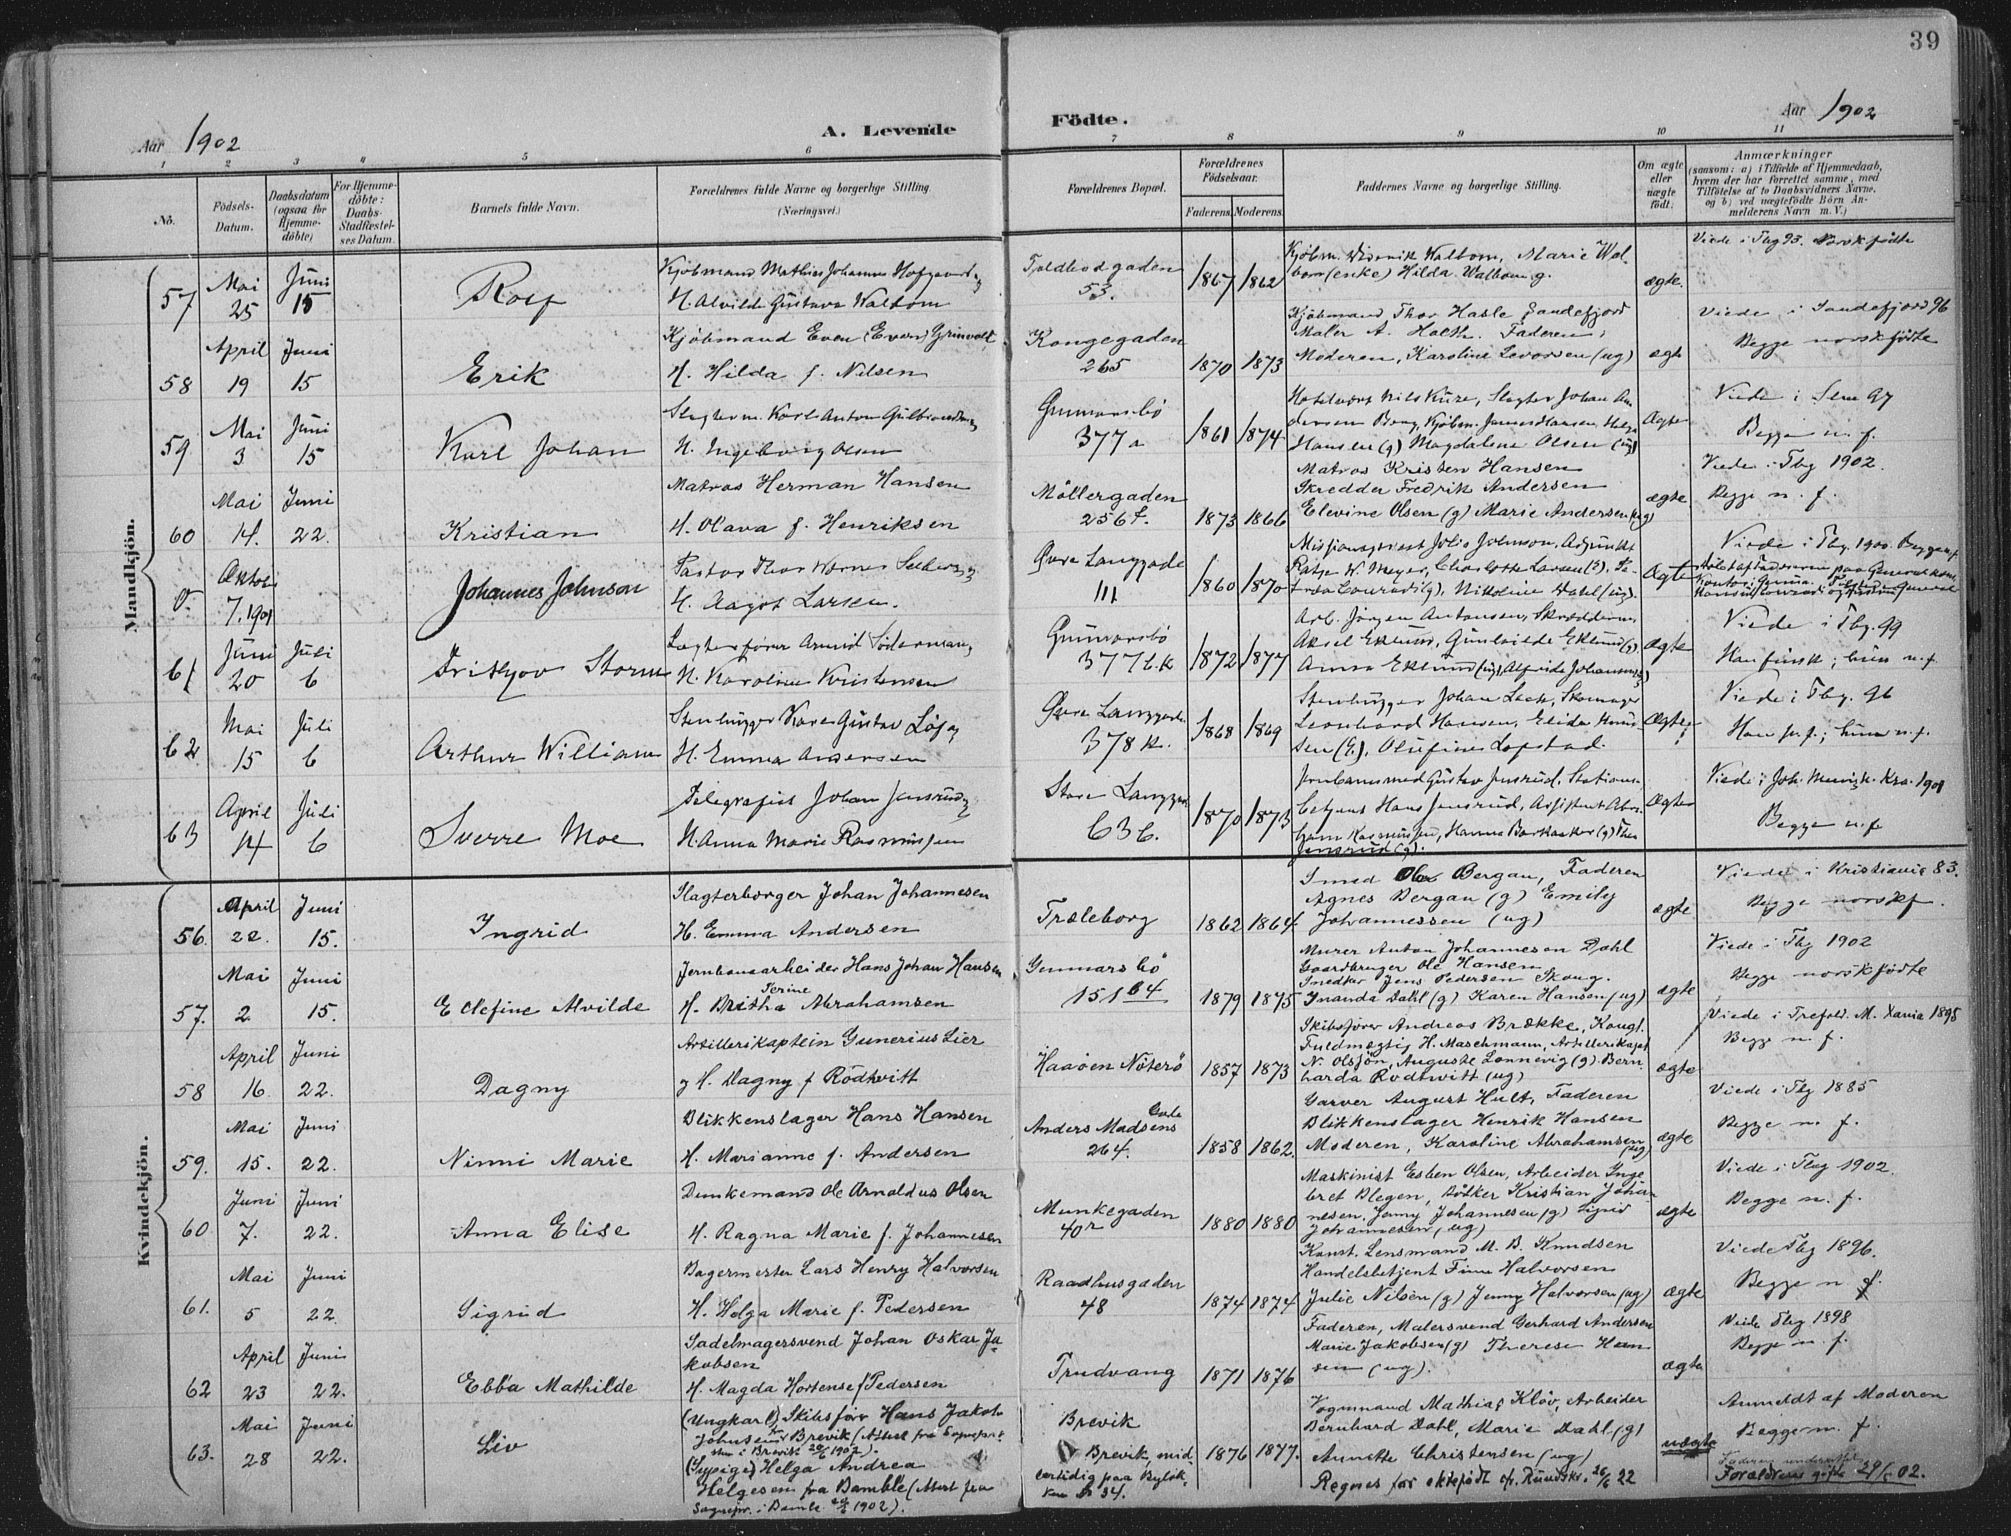 39
Aar 1902
A. Levende
Födte.
Aar 1902
1 2 3 4 5 6 7 8 9 10 11
No.
Födsels-Datum.
Daabsdatum (ogsaa for Hjemme-döbte)
For Hjemme-döbte: Daabs-Stadfæstel-ses Datum.
Barnets fulde Navn.
Forældrenes fulde Navne og borgerlige Stilling
(Næringsvei.)
Forældrenes Bopæl.
Forældrenes Födselsaar.
Faderens Moderens
Faddernes Navne og borgerlige Stilling.
Om ægte eller uægte födt.
Anmærkninger
(saasom: a) i Tilfælde af Hjemmedaab,
hvem der har forrettet samme, med
Tilföielse af to Daabsvidners Navne,
og b) ved uægtefödte Börn An-
melderens Navn m. V.)
Mandkjön.
57 Mai 25 Juni 15 Rolf
Kjöbmand Mathias Johannes
H. Alvilde Gustava Walbom
Toldbodgaden 53. 1867 1862
Marie Wal-
bom (enke) Hilda Walbom g.
ægte.
Viede i Tbg 93. Norskfödte
58 April 19 Juni 15 Erik
Kjöbmand Even (Even) Grinvold
H. Hilda f. Nilsen
Kongegaden 265 1870 1873
Kjöbmand Thor Hasle Sandefjord
Maler A. Holth. Faderen,
Moderen, Karoline Levorsen (ug)
ægte
Viede i Sandefjord 96
Begge norskfödte
59 Mai 3 Juni 15 Karl Johan
Slagterm. Karl Anton
H. Ingeborg Olsen
Gunnarsbö 377 a 1861 1874
Slagter Johan An-
dersen Berg, Kjöbm. James Hansen, Helga
Hansen (g) Magdalene Olsen (ug)
Ægte
Viede i Sem 97
Begge n. f.
60 Mai 14. Juni 22. Kristian
Matros Herman Hansen
H. Olava f. Henriksen
Möllergaden 256 f. 1873 1866
Matros Kristen Hansen
Skredder Fredrik Andersen
Elevine Olsen (g) Marie Andersen (ug)
ægte
Viede i Tbg 1902.
Begge n. f.
0. Oktober 7. 1901 Johannes Johnson
Pastor Thor Werner
H. Aagot Larsen.
Övre Langgade 111 1860 1870
Missionsprest Johs Johnson, Adjunkt
W. Meyer, Charlotte Larsen
Nikoline Dahl (ug).
Ægte
Viede i Tbg. 1900. Begge n. f.
61 Juni 20 Juli 6 Fritjov Storm
H. Karoline Kristensen
Gunnarsbö 377 b.k 1872 1877
Arb. Jörgen Antonsen, Skrædderm.
Aksel Eklund, Gunhilde Eklund (g),
Anna Eklund (ug), Alfride Johannesen
Ægte
Viede i Tbg. 99
Han finsk; hun n. f.
62 Mai 15 Juli 6 Arthur William
Stenhugger Karl Gustav
H. Emma Andersen
Övre Langgade 378 k. 1868 1869
Stenhugger Johan Lack, Skomager
Leonhard Hansen, Elida Han-
sen (E.), Olufine Lopstad.
Ægte
Viede i Tbg. 96
hun n. f.
63 April 14 Juli 6 Sverre Moe
Telegrafist Johan Jensrud
H. Anna Marie Rasmussen
Store Langgade 63 b. 1870 1873
Jernbanemed Gustav Jensrud, Stations-
betjent Hans Jensrud, Assistent Abra-
ham Rasmussen, Hanna Barkaaker (g) Thea
Jensrud (g).
Ægte
Begge n. f.
Kvindekjön.
56. April 22. Juni 15. Ingrid
Slagterborger Johan Johannesen
H. Emma Andersen
Træleborg 1862 1864
Smed Ole Bergan, Faderen
Agnes Bergan (g) Emily
Johannessen (ug)
ægte
Viede i Kristiania 83.
Begge norskf.
57. Mai 2. Juni 15. Edefine Alvilde
Jernbanearbeider Hans Johan Hansen
H. Britha Serine Abrahamsen
Gunnarsbö 151 b4 1879 1875
Murer Anton Johannesen Dahl
Gaardbruger Ole Hansen
Snedker Jens Pedersen Skoug.
Inanda Dahl (g) Karen Hansen (ug)
ægte
Viede i Tbg 1902
Begge norskfödte
58 April 16. Juni 22. Dagny
Artillerikaptein Gunerius Lier
og H. Dagny f Rödtwitt
Haaöen Nöterö 1857 1873
Skibsförer Andreas Brække, Kongl.
Fuldmægtig H. Maschmann, Artillerikapt
N. Olsjön, Auguste Lonnevig (g) Bern-
harda Rodtwitt (ug)
ægte
Viede i Trefold. M. Xania 1895
Begge n. f.
59. Mai 15. Juni 22. Ninni Marie
Blikkenslager Hans Hansen
H. Marianne f. Andersen
Anders Madsens Gade 264. 1858 1862.
Garver August Hult, Faderen
Blikkenslager Henrik Hansen
Moderen, Karoline Abrahamsen (ug)
ægte
Viede i Tbg 1885
Begge n. f.
60. Juni 7. Juni 22. Anna Elise
Dunkemand Ole Arnoldus Olsen
H. Ragna Marie f. Johannesen
Munkegaden 40 r 1880 1880
Maskinist Esben Olsen, Arbeider Inge-
bret Blegen, Bötker Kristian Johan-
nesen, Jenny Johannesen (g) Sigrid
Johannesen (ug)
ægte
Viede i Tbg 1902.
Begge n. f.
61. Mai 5 Juni 22. Sigrid
Bagermester Lars Henry Halvorsen
H. Helga Marie f. Pedersen
Raadhusgaden 48 1874 1874
Konst. Lensmand M. B. Knudsen
Handelsbetjent Finn Halvorsen
Julie Nilsen (g) Jenny Halvorsen (ug)
ægte
Viede Tbg 1896.
Begge n f.
62 April 23 Juni 22. Ebba Mathilde
Sadelmagersvend Johan Oskar Ja-
kobsen
H. Magda Hortense f Pedersen
Trudvang 1871 1876
Faderen, Malersvend Gerhard Andersen
Marie Jakobsen (g) Therese Han-
sen (ug).
ægte
Viede Tbg 1898
Begge n. f.
63. Mai 28 Juni 22. Liv
(Ungkar) Skibsförer Hans Jakob
Johnsen Brevik (Attest fra Sognepre-
sten i Brevik 20/6 1902).
(Sypige) Helga Andrea
Helgesen fra Bamble (Attest fra
Sognepr. i Bamle 1902).
Brevik
Brevik, mid-
lertidig paa Bylök-
ken No 34. 1876 1877.
Vognmand Mathias Klöv, Arbeider
Bernhard Dahl, Marie Dahl (g)
Annette Christensen (ug)
Regnes for ektefödt cfr. Rundskr. 26/6 22
uægte
Anmeldt af Moderen
Begge n. f.
Forældrene gifte 29/6 02.